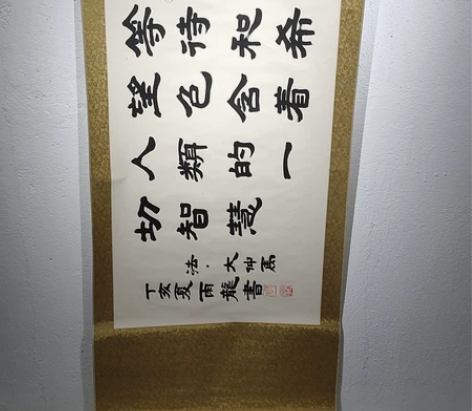 等待和希
望包含着
人類的一
切智慧
法·大仲馬
丁亥夏雨龍書